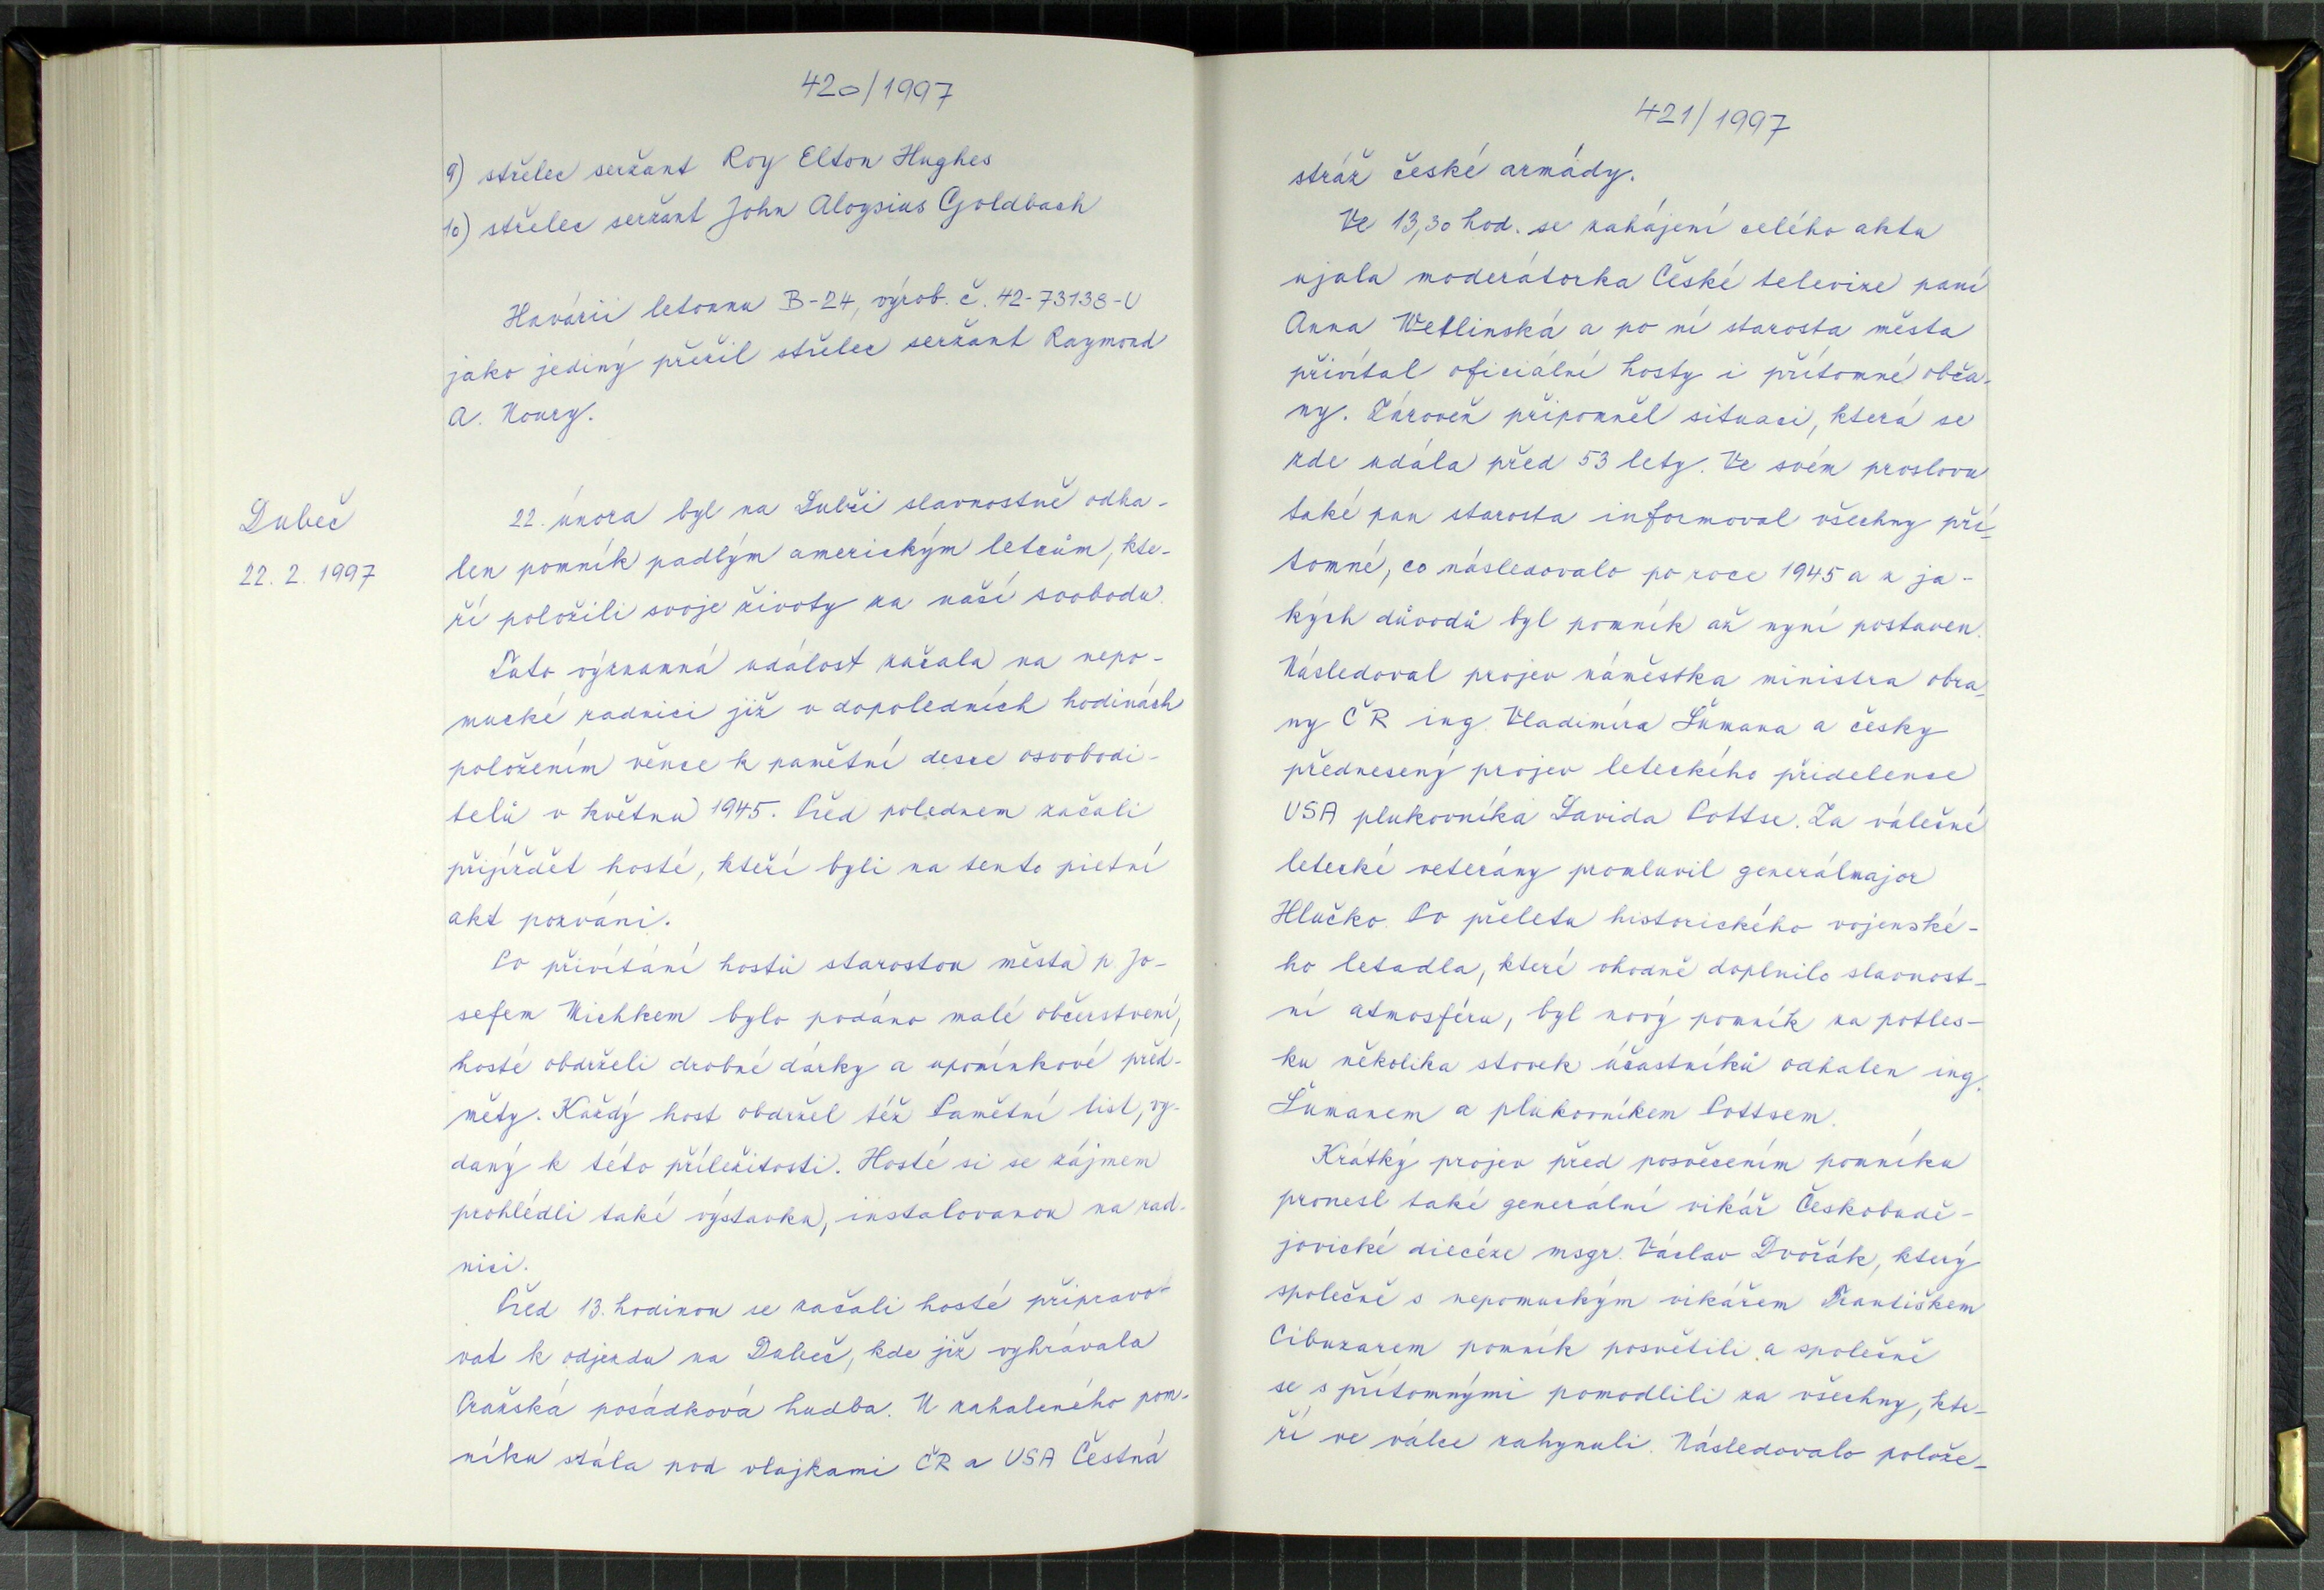 420/1997
9) střelec seržant Roy Elton Hughes
10) střelec seržant John Aloysius Goldbach
Havárii letounu B-24, výrob. č. 42-73138-U
jako jediný přežil střelec seržant Raymond
A. Noury.
Dubeč
22. 2. 1997
22. února byl na Dubči slavnostně odha-
len pomník padlým americkým letcům, kte-
ří položili svoje životy za naší svobodu.
Tato významná událost začala na nepo-
mucké radnici již v dopoledních hodinách
položením věnce k pamětní desce osvobodi-
telů v květnu 1945. Před polednem začali
přijíždět hosté, kteří byli na tento pietní
akt pozváni.
Po přivítání hostů starostou města p. Jo-
sefem Michkem bylo podáno malé občerstvení,
hosté obdrželi drobné dárky a upomínkové před-
měty. Každý host obdržel též Pamětní list, vy-
daný k této příležitosti. Hosté si se zájmem
prohlédli také výstavku, instalovanou na rad-
nici.
Před 13. hodinou se začali hosté připravo-
vat k odjezdu na Dubeč, kde již vyhrávala
Pražská posádková hudba. U zahaleného pom-
níku stála pod vlajkami ČR a USA Čestná
421/1997
stráž české armády.
Ve 13,30 hod. se zahájení celého aktu
ujala moderátorka České televize paní
Anna Wetlinská a po ní starosta města
přivítal oficiální hosty i přítomné obča-
ny. Zároveň připomněl situaci, která se
zde udála před 53 lety. Ve svém proslovu
také pan starosta informoval všechny pří-
tomné, co následovalo po roce 1945 a z ja-
kých důvodů byl pomník až nyní postaven.
Následoval projev náměstka ministra obra-
ny ČR ing. Vladimíra Šumana a česky
přednesený projev leteckého přidelence
USA plukovníka Davida Pottse. Za válečné
letecké veterány promluvil generálmajor
Hlučko. Po přeletu historického vojenské-
ho letadla, které vhodně doplnilo slavnost-
ní atmosféru, byl nový pomník za potles-
ku několika stovek účastníků odhalen ing.
Šumanem a plukovníkem Pottsem.
Krátký projev před posvěcením pomníku
pronesl také generální vikář Českobudě-
jovické diecéze msgr. Václav Dvořák, který
společně s nepomuckým vikářem Františkem
Cibuzarem pomník posvětili a společně
se s přítomnými pomodlili za všechny, kte-
ří ve válce zahynuli. Následovalo polože-